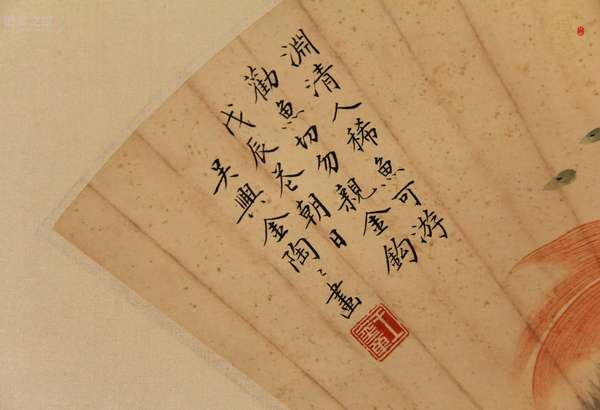 淵清人稀魚可游
勸魚切勿親金鈎
戊辰花朝日
吳興金陶〻畫